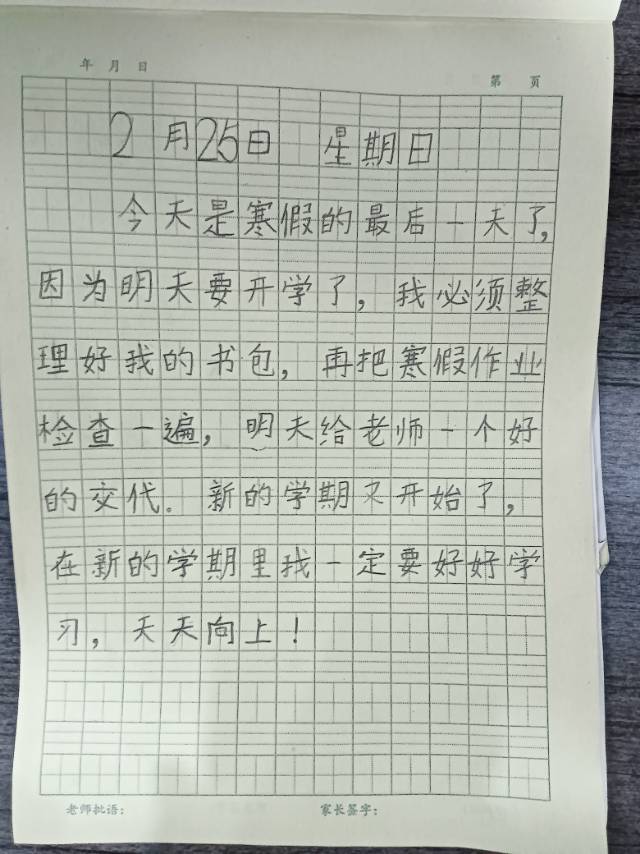 年 月 日
第 页
2月25日 星期日
今天是寒假的最后一天了,
因为明天要开学了,我必须整
理好我的书包,再把寒假作业
检查一遍,明天给老师一个好
的交代.新的学期又开始了,
在新的学期里我一定要好好学
习,天天向上!
老师批语: 家长签字: